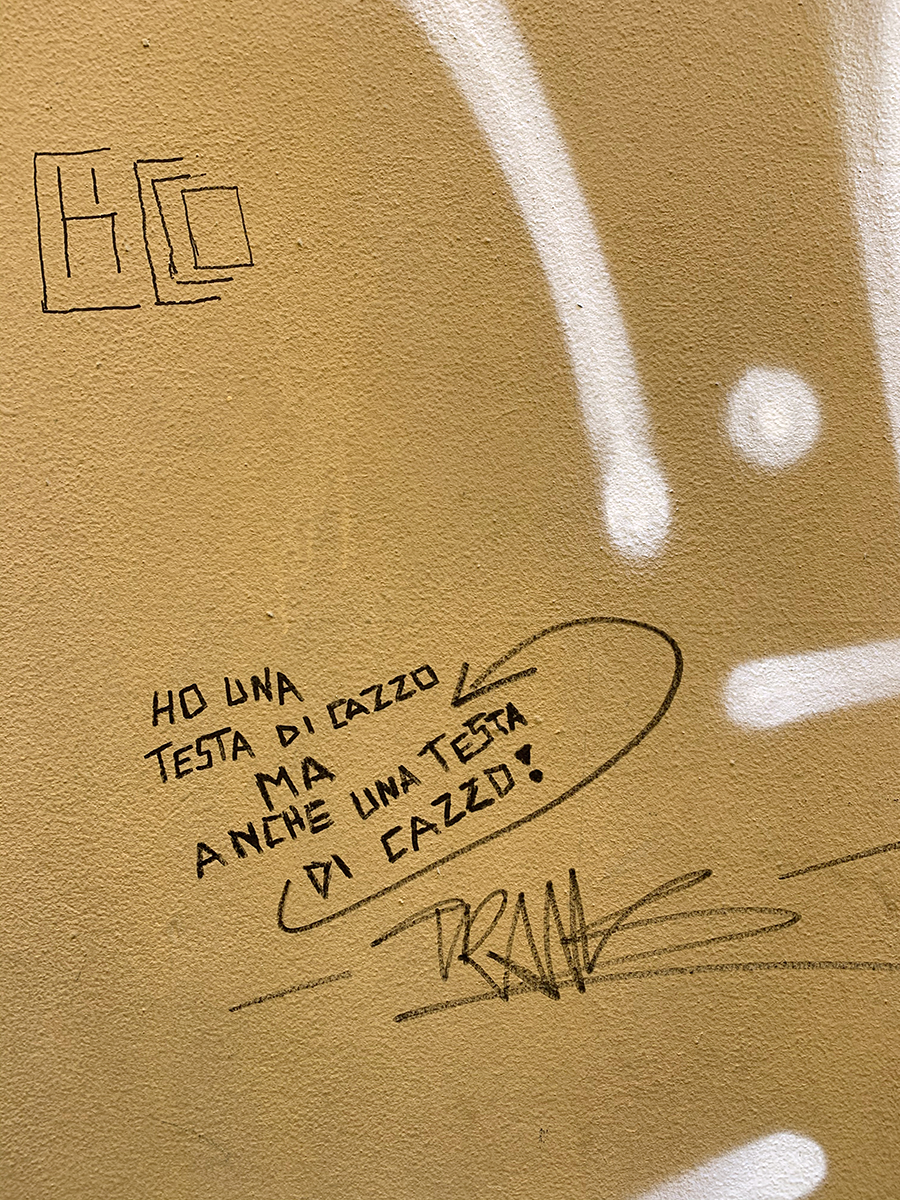 HO UNA
TESTA DI CAZZO
MA
ANCHE UNA TESTA
DI CAZZO!